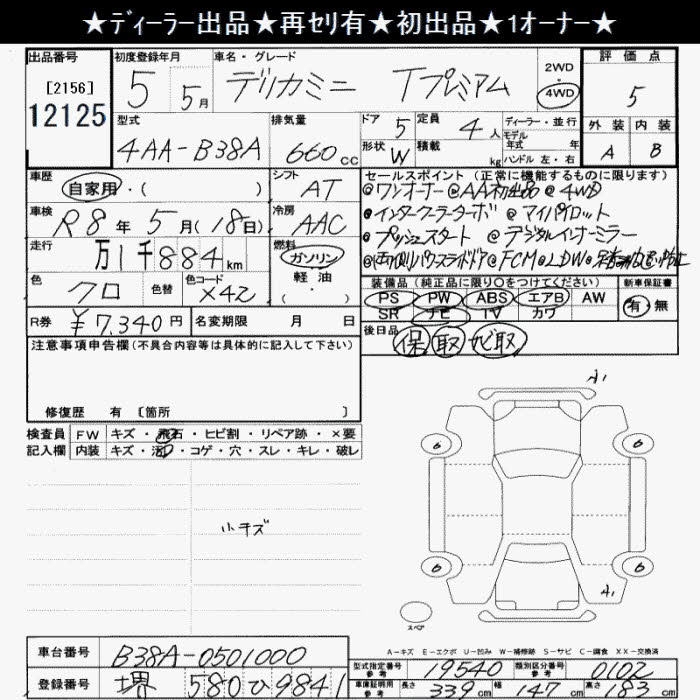 ★ディーラー出品★再セリ有★初出品★1オーナー★
出品番号 初度登録年月 車名・グレード 評価点
[2156] 5 5月 デリカミニ Tプレミアム 2WD・4WD 5
12125
型式 排気量 ドア 5 定員 4人 ディーラー・並行 外装 内装
4AA-B38A 660cc 形状 W 積載 kg モデル年式 年 A B
ハンドル 左・右
車歴 自家用・( ) シフト AT セールスポイント (正常に機能するものに限ります)
@ワンオーナー@AA初出品@4WD
車検 R8年5月(18日) 冷房 AAC @インタークーラーターボ @マイパイロット
走行 万1千884km 燃料 ガソリン 軽油・( ) @プッシュスタート @デジタルインナーミラー
@両側パワースライドドア@FCM@LDW@
色 クロ 色替 色コード X42 装備品 (純正品に限り○をつけてください) 新車保証書
PS PW ABS エアB AW 有・無
SR ナビ TV カワ
R券 ¥7,340円 名変期限 月 日 後日品 保 取 ナビ取
注意事項申告欄(不具合内容等は具体的に記入して下さい)
修復歴 有 [箇所 ]
A1
検査員 FW キズ・飛石・ヒビ割・リペア跡・×要
記入欄 内装 キズ・汚・コゲ・穴・スレ・キレ・破レ
6 6
小キズ
6 6
A1
スペア
A-キズ E-エクボ U-凹み W-補修跡 S-サビ C-腐食 XX-交換済
車台番号 B38A-0501000 型式指定番号 参考 19540 類別区分番号 参考 0102
登録番号 堺 580 ひ 9841 車庫証明用 参考 長さ 339cm 幅 147cm 高さ 183cm